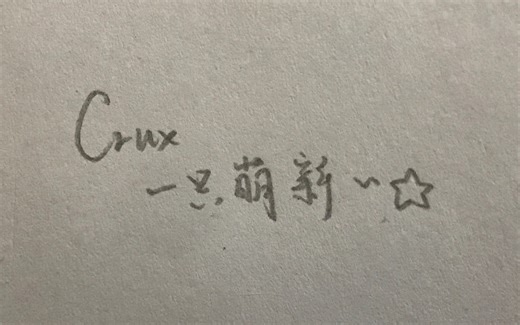 Crux
一只萌新~☆